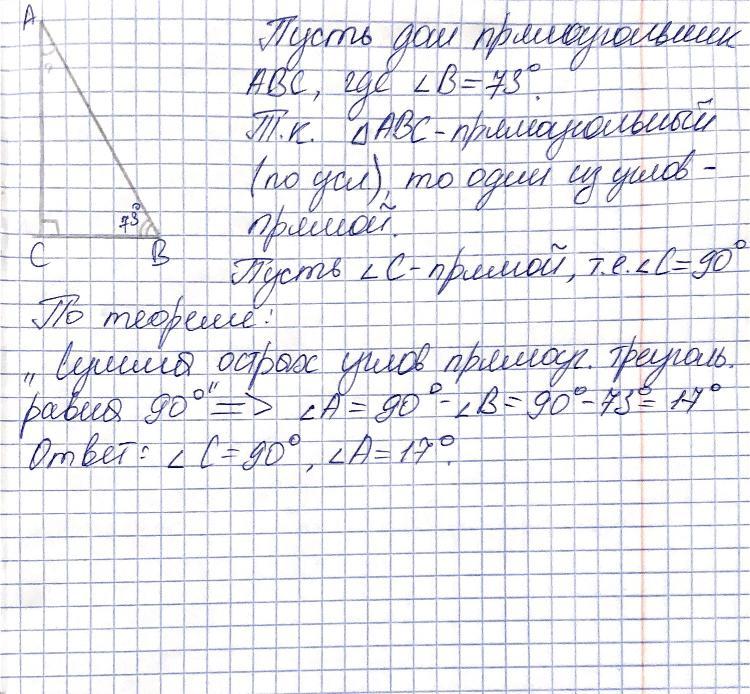 A
73°
C
B
Пусть дан прямоугольник
ABC, где ∠B = 73°.
Т.к. △ABC - прямоугольный
(по усл), то один из углов -
прямой.
Пусть ∠C - прямой, т.е. ∠C = 90°
По теореме:
„Сумма острых углов прямоуг. треуголь.
равна 90°" => ∠A = 90° - ∠B = 90° - 73° = 17°
Ответ: ∠C = 90°, ∠A = 17°.